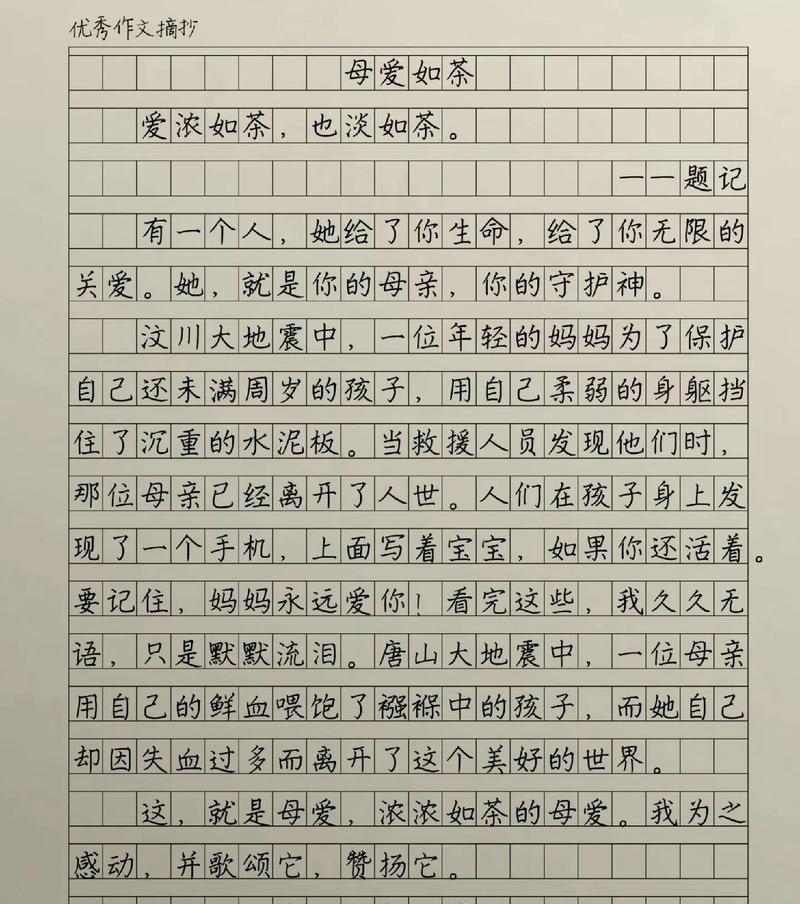 优秀作文摘抄
母爱如茶
爱浓如茶，也淡如茶。
——题记
有一个人，她给了你生命，给了你无限的
关爱。她，就是你的母亲，你的守护神。
汶川大地震中，一位年轻的妈妈为了保护
自己还未满周岁的孩子，用自己柔弱的身躯挡
住了沉重的水泥板。当救援人员发现他们时，
那位母亲已经离开了人世。人们在孩子身上发
现了一个手机，上面写着宝宝，如果你还活着。
要记住，妈妈永远爱你！看完这些，我久久无
语，只是默默流泪。唐山大地震中，一位母亲
用自己的鲜血喂饱了襁褓中的孩子，而她自己
却因失血过多而离开了这个美好的世界。
这，就是母爱，浓浓如茶的母爱。我为之
感动，并歌颂它，赞扬它。